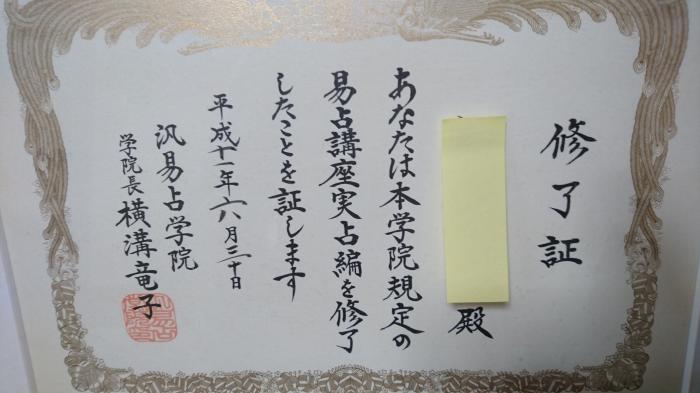 修了証
殿
あなたは本学院規定の
易占講座実占編を修了
したことを証します
平成十一年六月三十日
汎易占学院
学院長 横溝竜子